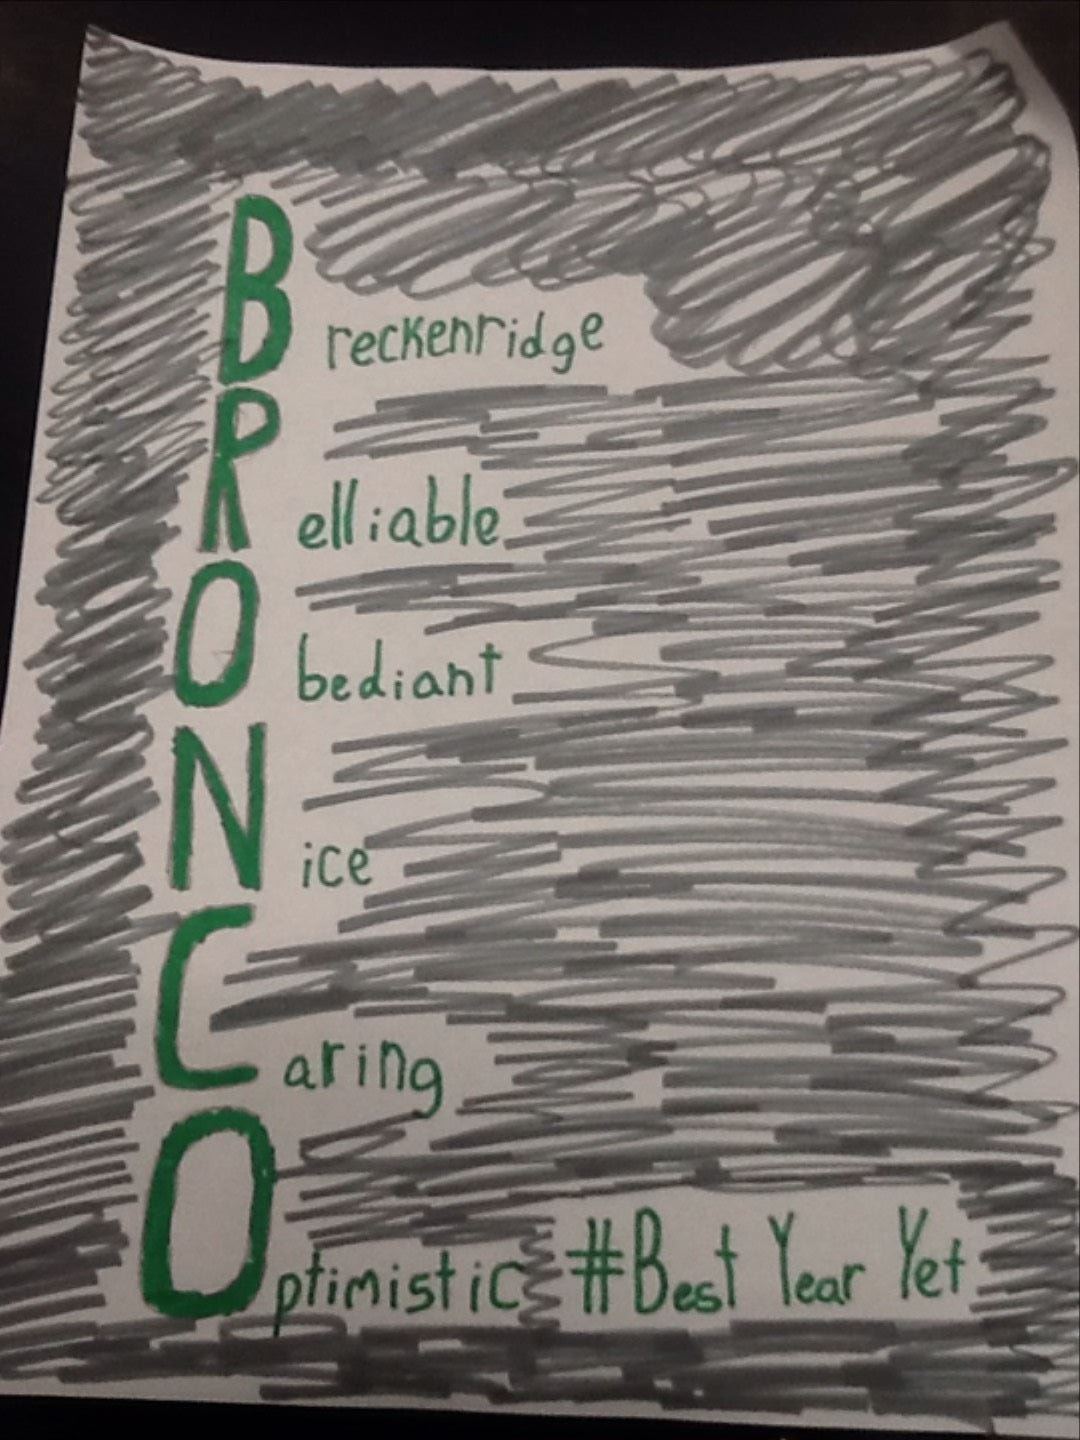 Breckenridge
Relliable
Obediant
Nice
Caring
Optimistic #Best Year Yet